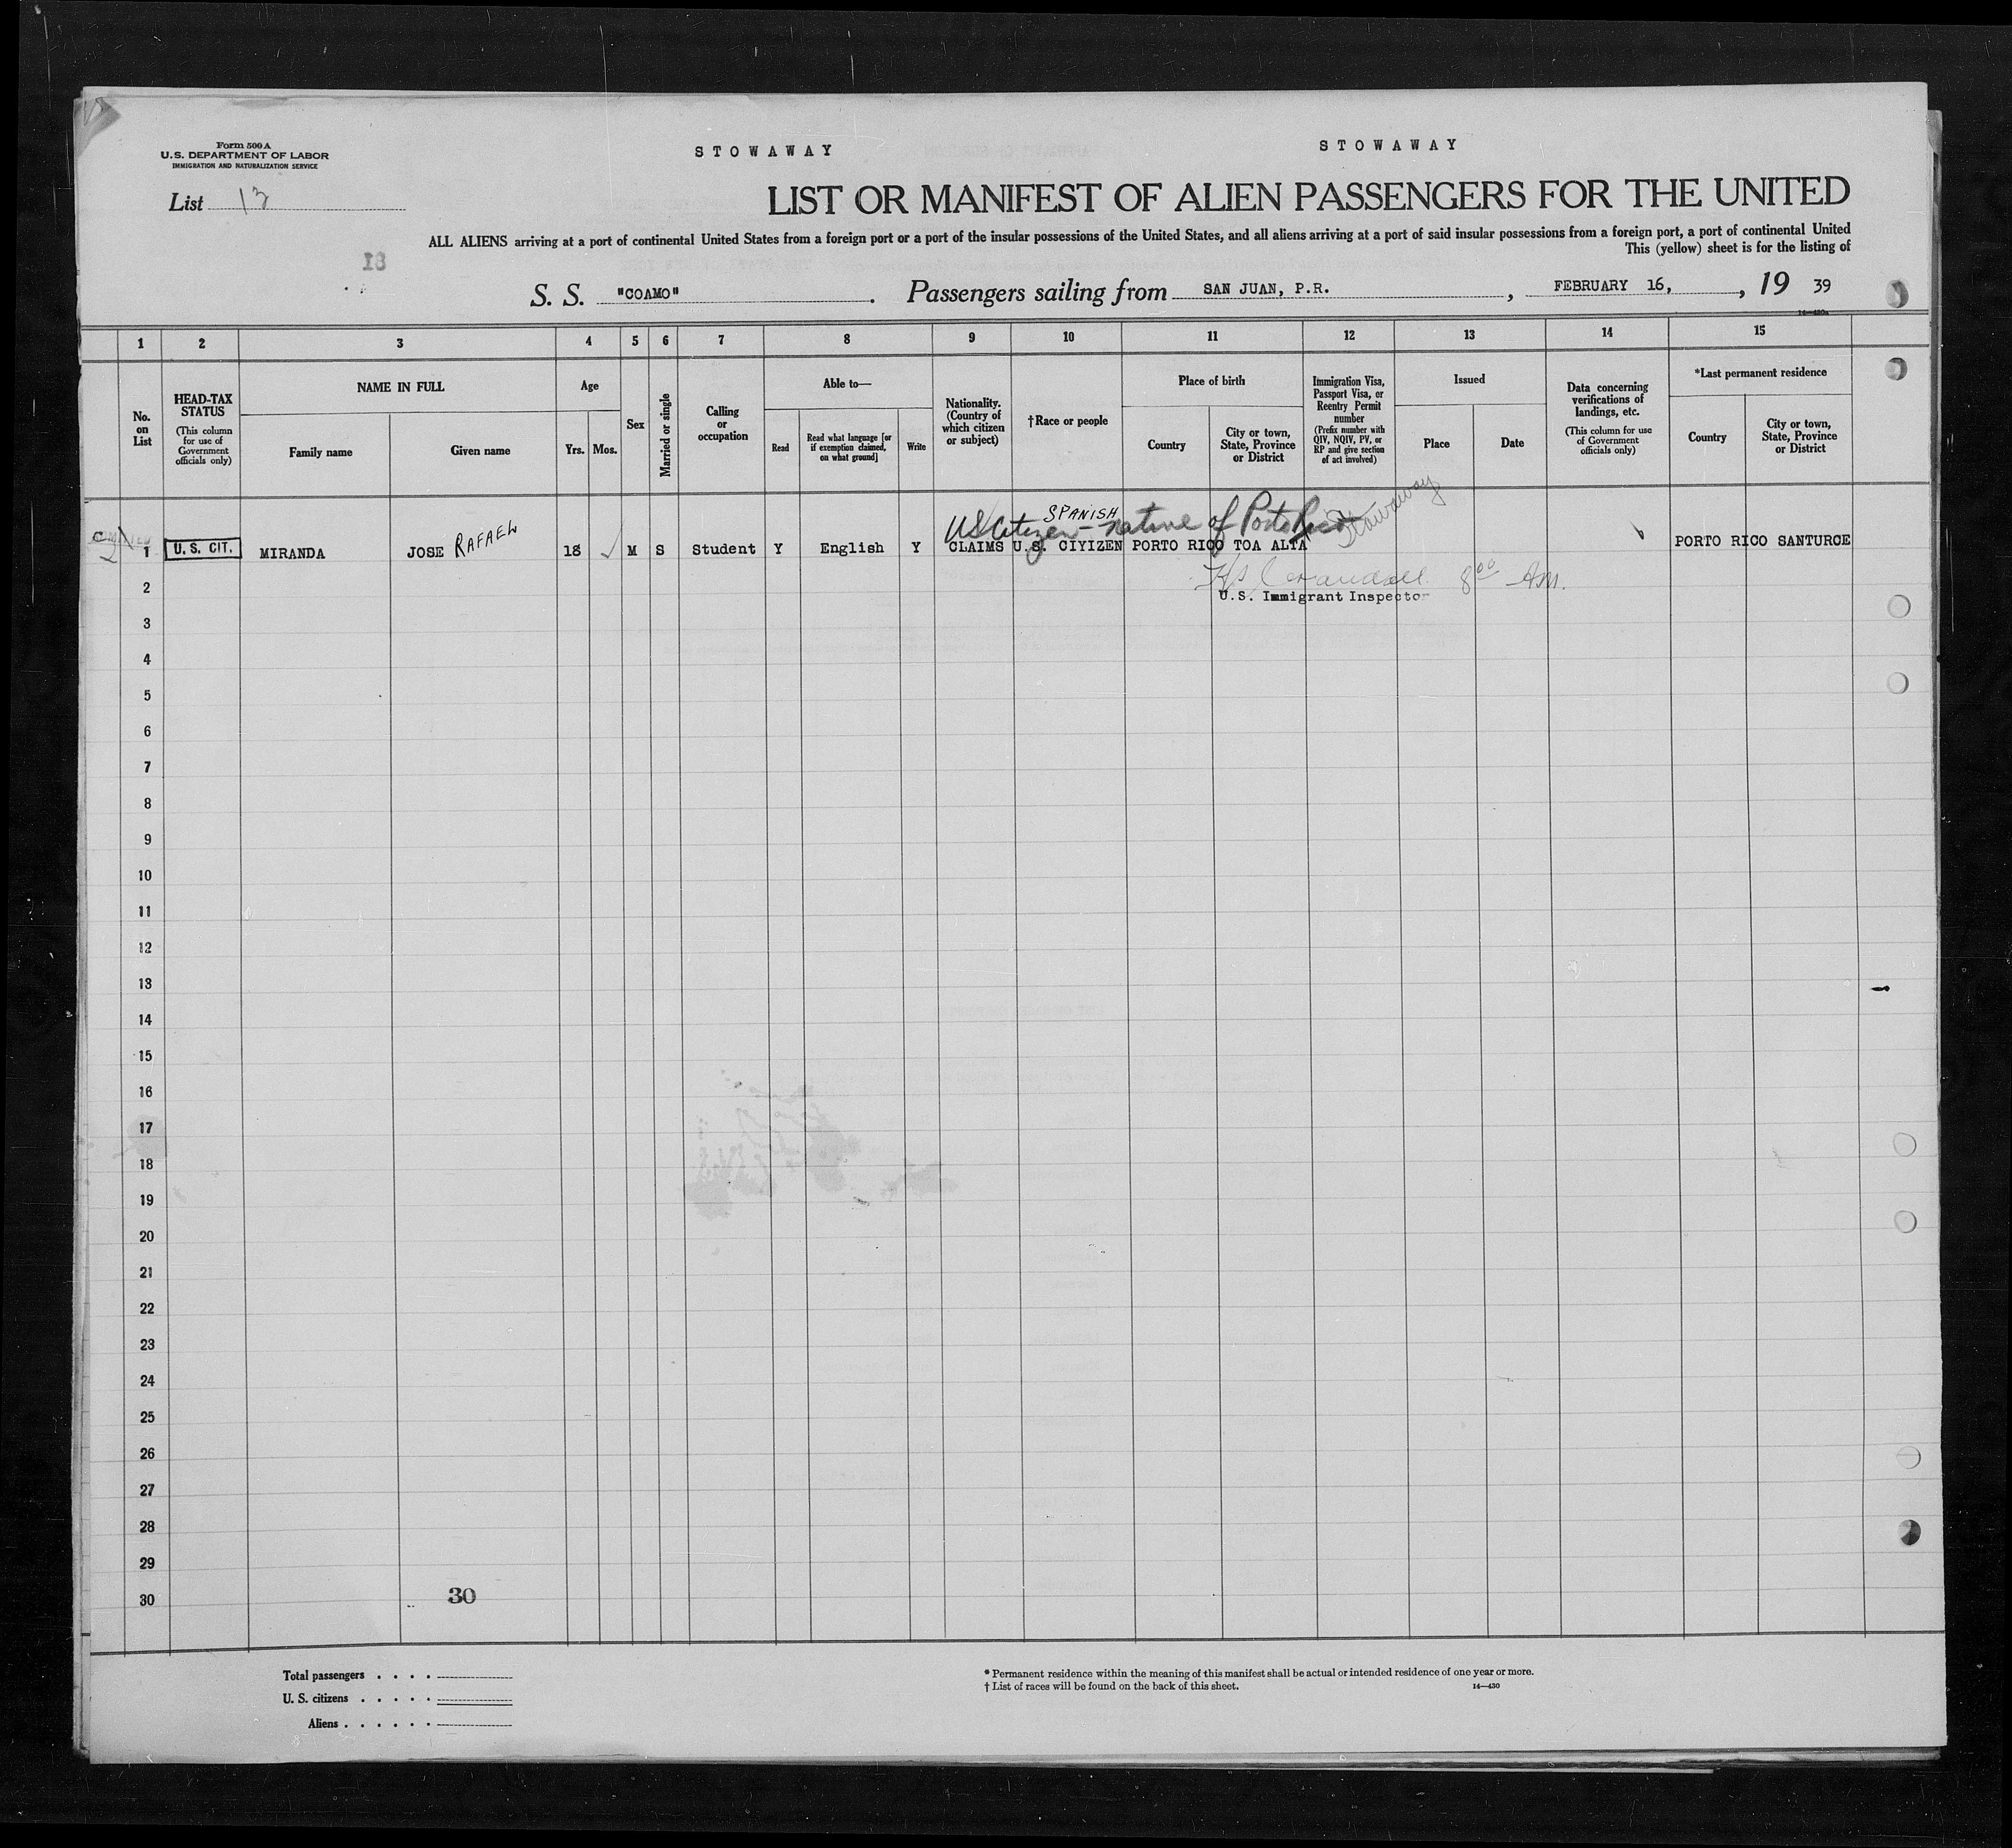 Form 500 A
U.S. DEPARTMENT OF LABOR
IMMIGRATION AND NATURALIZATION SERVICE
STOWAWAY
STOWAWAY
List 13
LIST OR MANIFEST OF ALIEN PASSENGERS FOR THE UNITED
ALL ALIENS arriving at a port of continental United States from a foreign port or a port of the insular possessions of the United States, and all aliens arriving at a port of said insular possessions from a foreign port, a port of continental United
This (yellow) sheet is for the listing of
18
S. S. "COAMO" . Passengers sailing from SAN JUAN, P.R. , FEBRUARY 16, , 19 39
1 2 3 4 5 6 7 8 9 10 11 12 13 14 15
No. on List
HEAD-TAX STATUS
(This column for use of Government officials only)
NAME IN FULL
Family name
Given name
Age
Yrs. Mos.
Sex
Married or single
Calling or occupation
Able to—
Read
Read what language [or if exemption claimed, on what ground]
Write
Nationality. (Country of which citizen or subject)
†Race or people
Place of birth
Country
City or town, State, Province or District
Immigration Visa, Passport Visa, or Reentry Permit number
(Prefix number with QIV, NQIV, PV, or RP and give section of act involved)
Issued
Place
Date
Data concerning verifications of landings, etc.
(This column for use of Government officials only)
*Last permanent residence
Country
City or town, State, Province or District
SPANISH
US Citizen - native of Porto Rico
Stowaway
1 U.S. CIT. MIRANDA JOSE RAFAEL 18 M S Student Y English Y CLAIMS U.S. CIYIZEN PORTO RICO TOA ALTA PORTO RICO SANTURCE
Crandall 8 00 AM.
2
U.S. Immigrant Inspector
3
4
5
6
7
8
9
10
11
12
13
14
15
16
17
18
19
20
21
22
23
24
25
26
27
28
29
30
30
Total passengers . . . .
U. S. citizens . . . . .
Aliens . . . . . .
* Permanent residence within the meaning of this manifest shall be actual or intended residence of one year or more.
† List of races will be found on the back of this sheet.
14—430